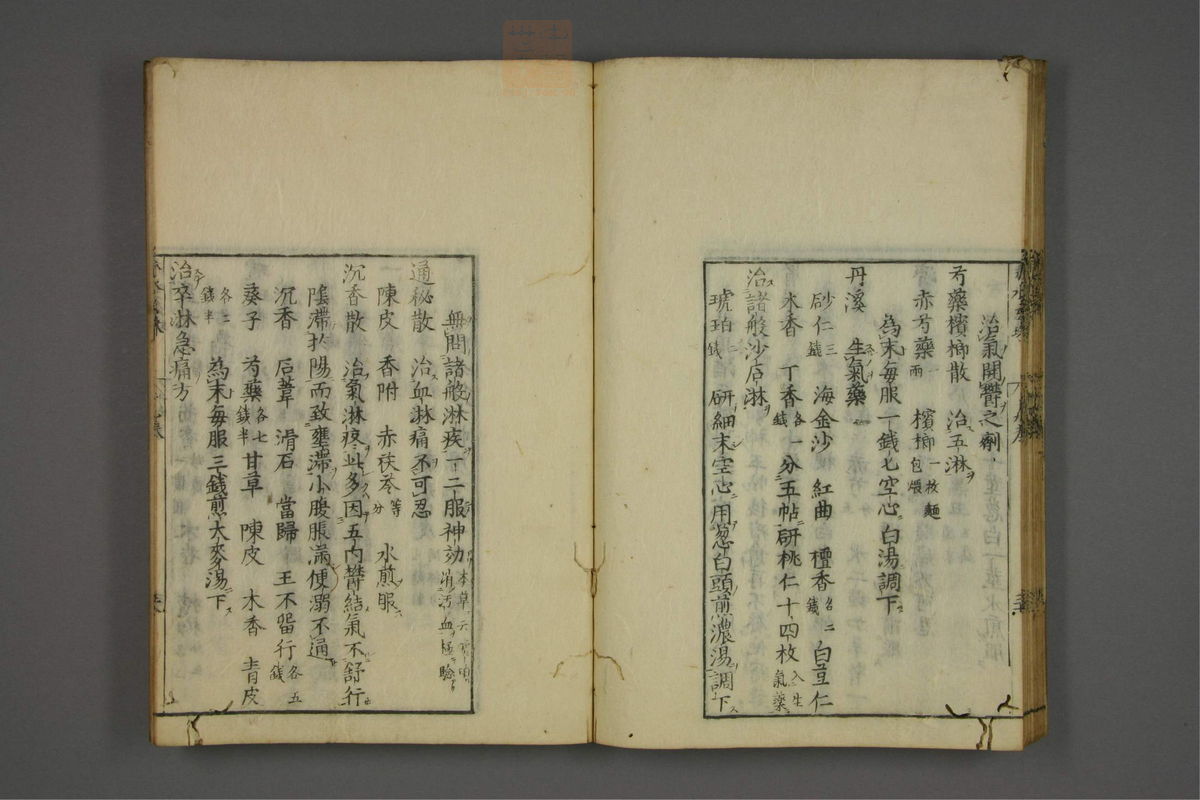 治氣開鬱之劑
芍藥檳榔散　治五淋
赤芍藥一兩　檳榔一枚麵包煨
為末每服一錢七空心白湯調下
丹溪　生氣藥
砂仁三錢　海金沙　紅曲　檀香各二錢　白荳仁
木香　丁香各一錢　分五帖研桃仁十四枚入生氣藥
治諸般沙石淋
琥珀二錢　研細末空心用葱白頭煎濃湯調下
無問諸般淋疾一二服神効
通秘散　治血淋痛不可忍
陳皮　香附　赤茯苓等分　水煎服
沉香散　治氣淋疼此多因五內鬱結氣不舒行
陰滯於陽而致壅滯小腹脹滿便溺不通
沉香　石葦　滑石　當歸　王不畱行各五錢
葵子　芍藥各七錢半　甘草　陳皮　木香　青皮
各二錢半　為末每服三錢煎大麥湯下
治卒淋急痛方